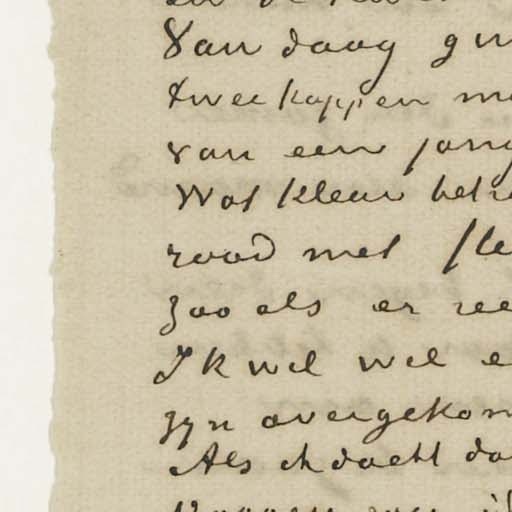 Van daag
twee koppen m
van een jong
Wat kleur betr
rood met
zooals er
Ik wel wel e
zyn overgekom
Als ik dacht da